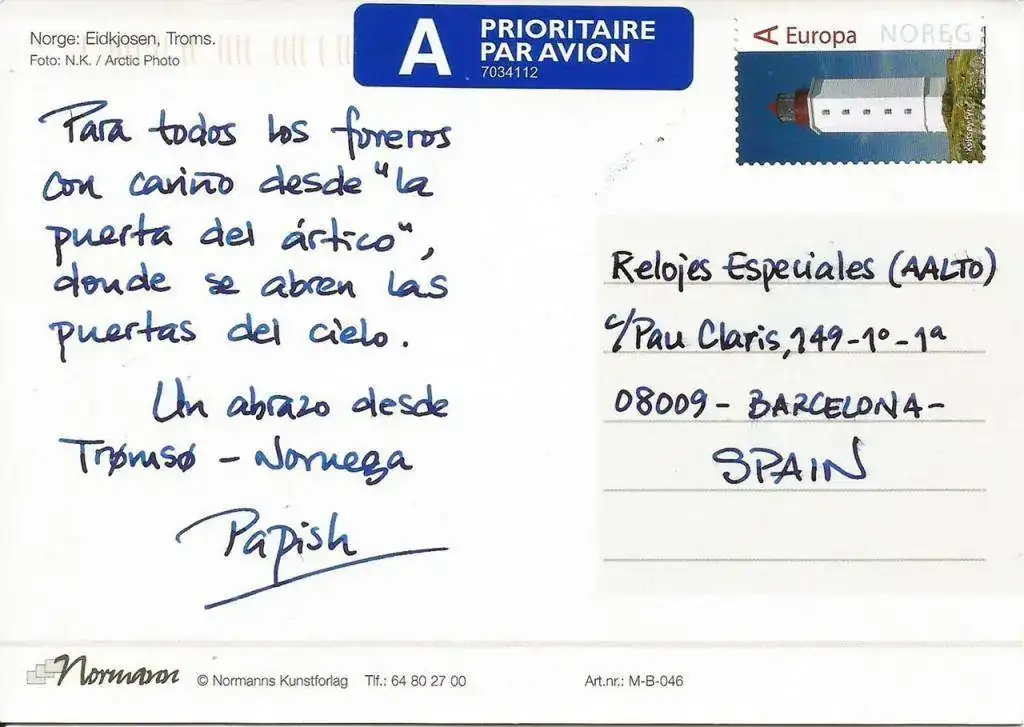 Norge: Eidkjosen, Troms.
Foto: N.K. / Arctic Photo
A PRIORITAIRE
PAR AVION
7034112
A Europa NOREG
Para todos los foreros
con cariño desde "la
puerta del ártico",
donde se abren las
puertas del cielo.
Un abrazo desde
Trømsø - Noruega
Papish
Relojes Especiales (AALTO)
c/Pau Claris, 149-1º-1ª
08009 - BARCELONA-
SPAIN
Normann © Normanns Kunstforlag Tlf.: 64 80 27 00 Art.nr.: M-B-046